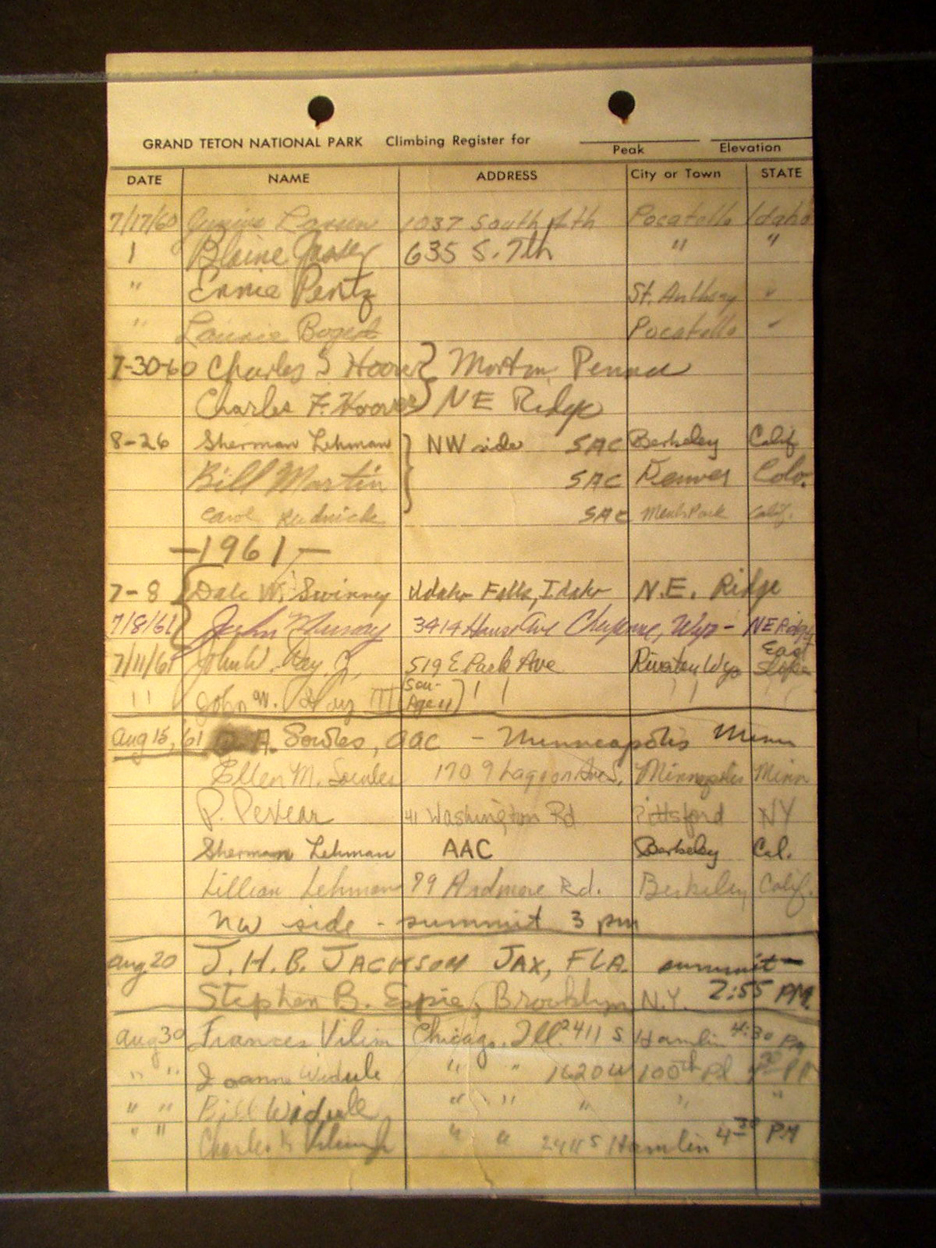 GRAND TETON NATIONAL PARK Climbing Register for Peak Elevation
DATE NAME ADDRESS City or Town STATE
7/17/60 Larsen 1037 South 4th Pocatello Idaho
" Blaine 635 S. 7th " "
" Ernie Pentz St. Anthony "
" Bogert Pocatello "
7-30-60 Charles S Hoover } Mortin Penna
Charles F. Hoover } NE Ridge
8-26 Sherman Lehman NW side SAC Berkeley Calif
Bill Martin SAC Denver Colo.
Carol Rudnick SAC Menlo Park Calif.
-1961-
7-8 Dale W. Swinney Idaho Falls, Idaho N.E. Ridge
7/8/61 John Murray 3414 Ave Cheyenne, Wyo - NE Ridge
7/11/61 John W. Hay Jr, 519 E Park Ave Wyo East Slope
" John W. Hay III (Son- Age 11) " "
Aug 15, 61 A. Sowles, AAC - Minneapolis Minn
Ellen M. Sowles 1709 Lagoon Ave, Minneapolis Minn
P. Pevear 41 Washington Rd Pittsford NY
Sherman Lehman AAC Berkeley Cal.
Lillian Lehman 99 Ardmore Rd. Berkeley Calif.
NW side - summit 3 pm
Aug 20 J. H. B. JACKSON JAX, FLA. summit-
Stephen B. Espie, Brooklyn N.Y. 2:55 PM
Aug 30 Frances Vilim Chicago, Ill. 2411 S Hamlin 4:30 PM
" " Joanne Widule " " 1620 W 100th Pl PM
" " Bill Widule " " " " "
" " Charles " " 2411 S Hamlin 4-30 PM